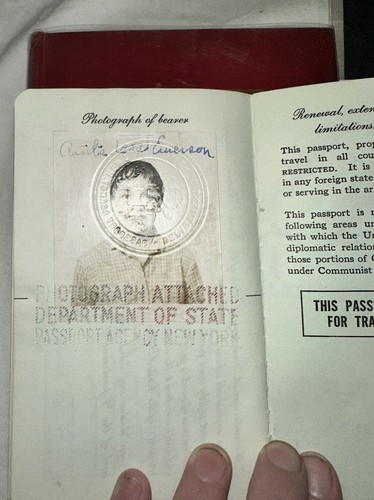 Photograph of bearer
Emerson
PHOTOGRAPH ATTACHED
DEPARTMENT OF STATE
PASSPORT AGENCY NEW YORK
Renewal, exten
limitations,
This passport, prop
travel in all cou
RESTRICTED. It is
in any foreign state
or serving in the ar
This passport is n
following areas un
with which the Un
diplomatic relation
those portions of C
under Communist
THIS PASS
FOR TRA